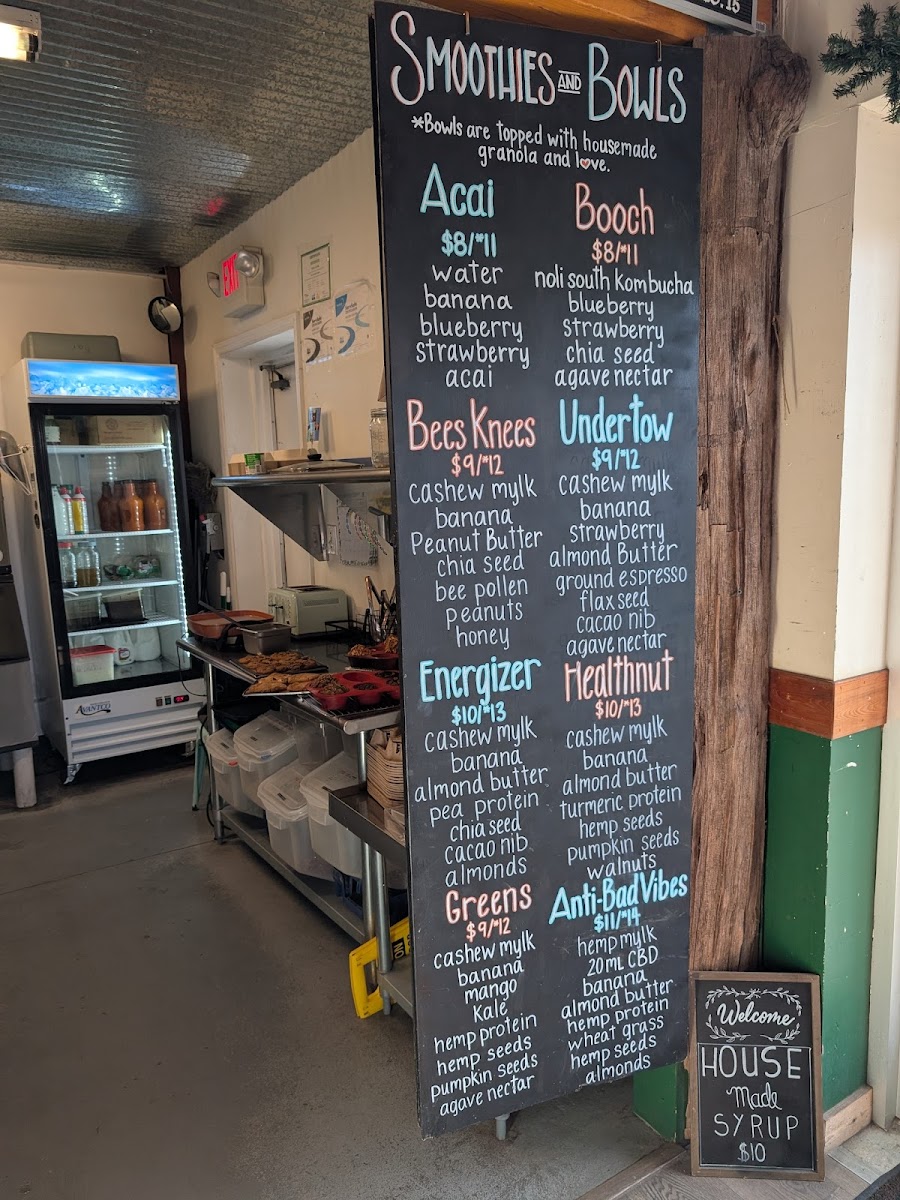 SMOOTHIES AND BOWLS
*Bowls are topped with housemade
granola and love.
Acai
$8/*11
water
banana
blueberry
strawberry
acai
Booch
$8/*11
noli south Kombucha
blueberry
strawberry
chia seed
agave nectar
Bees Knees
$9/*12
cashew mylk
banana
Peanut Butter
chia seed
bee pollen
peanuts
honey
Undertow
$9/*12
cashew mylk
banana
strawberry
almond Butter
ground espresso
flaxseed
cacao nib
agave nectar
Energizer
$10/*13
cashew mylk
banana
almond butter
pea protein
chia seed
cacao nib
almonds
Healthnut
$10/*13
cashew mylk
banana
almond butter
turmeric protein
hemp seeds
pumpkin seeds
walnuts
Greens
$9/*12
cashew mylk
banana
mango
Kale
hemp protein
hemp seeds
pumpkin seeds
agave nectar
Anti-Bad Vibes
$11/*14
hemp mylk
20mL CBD
banana
almond butter
hemp protein
wheat grass
hemp seeds
almonds
Welcome
HOUSE
Made
SYRUP
$10
EXIT
AVANTCO
NO